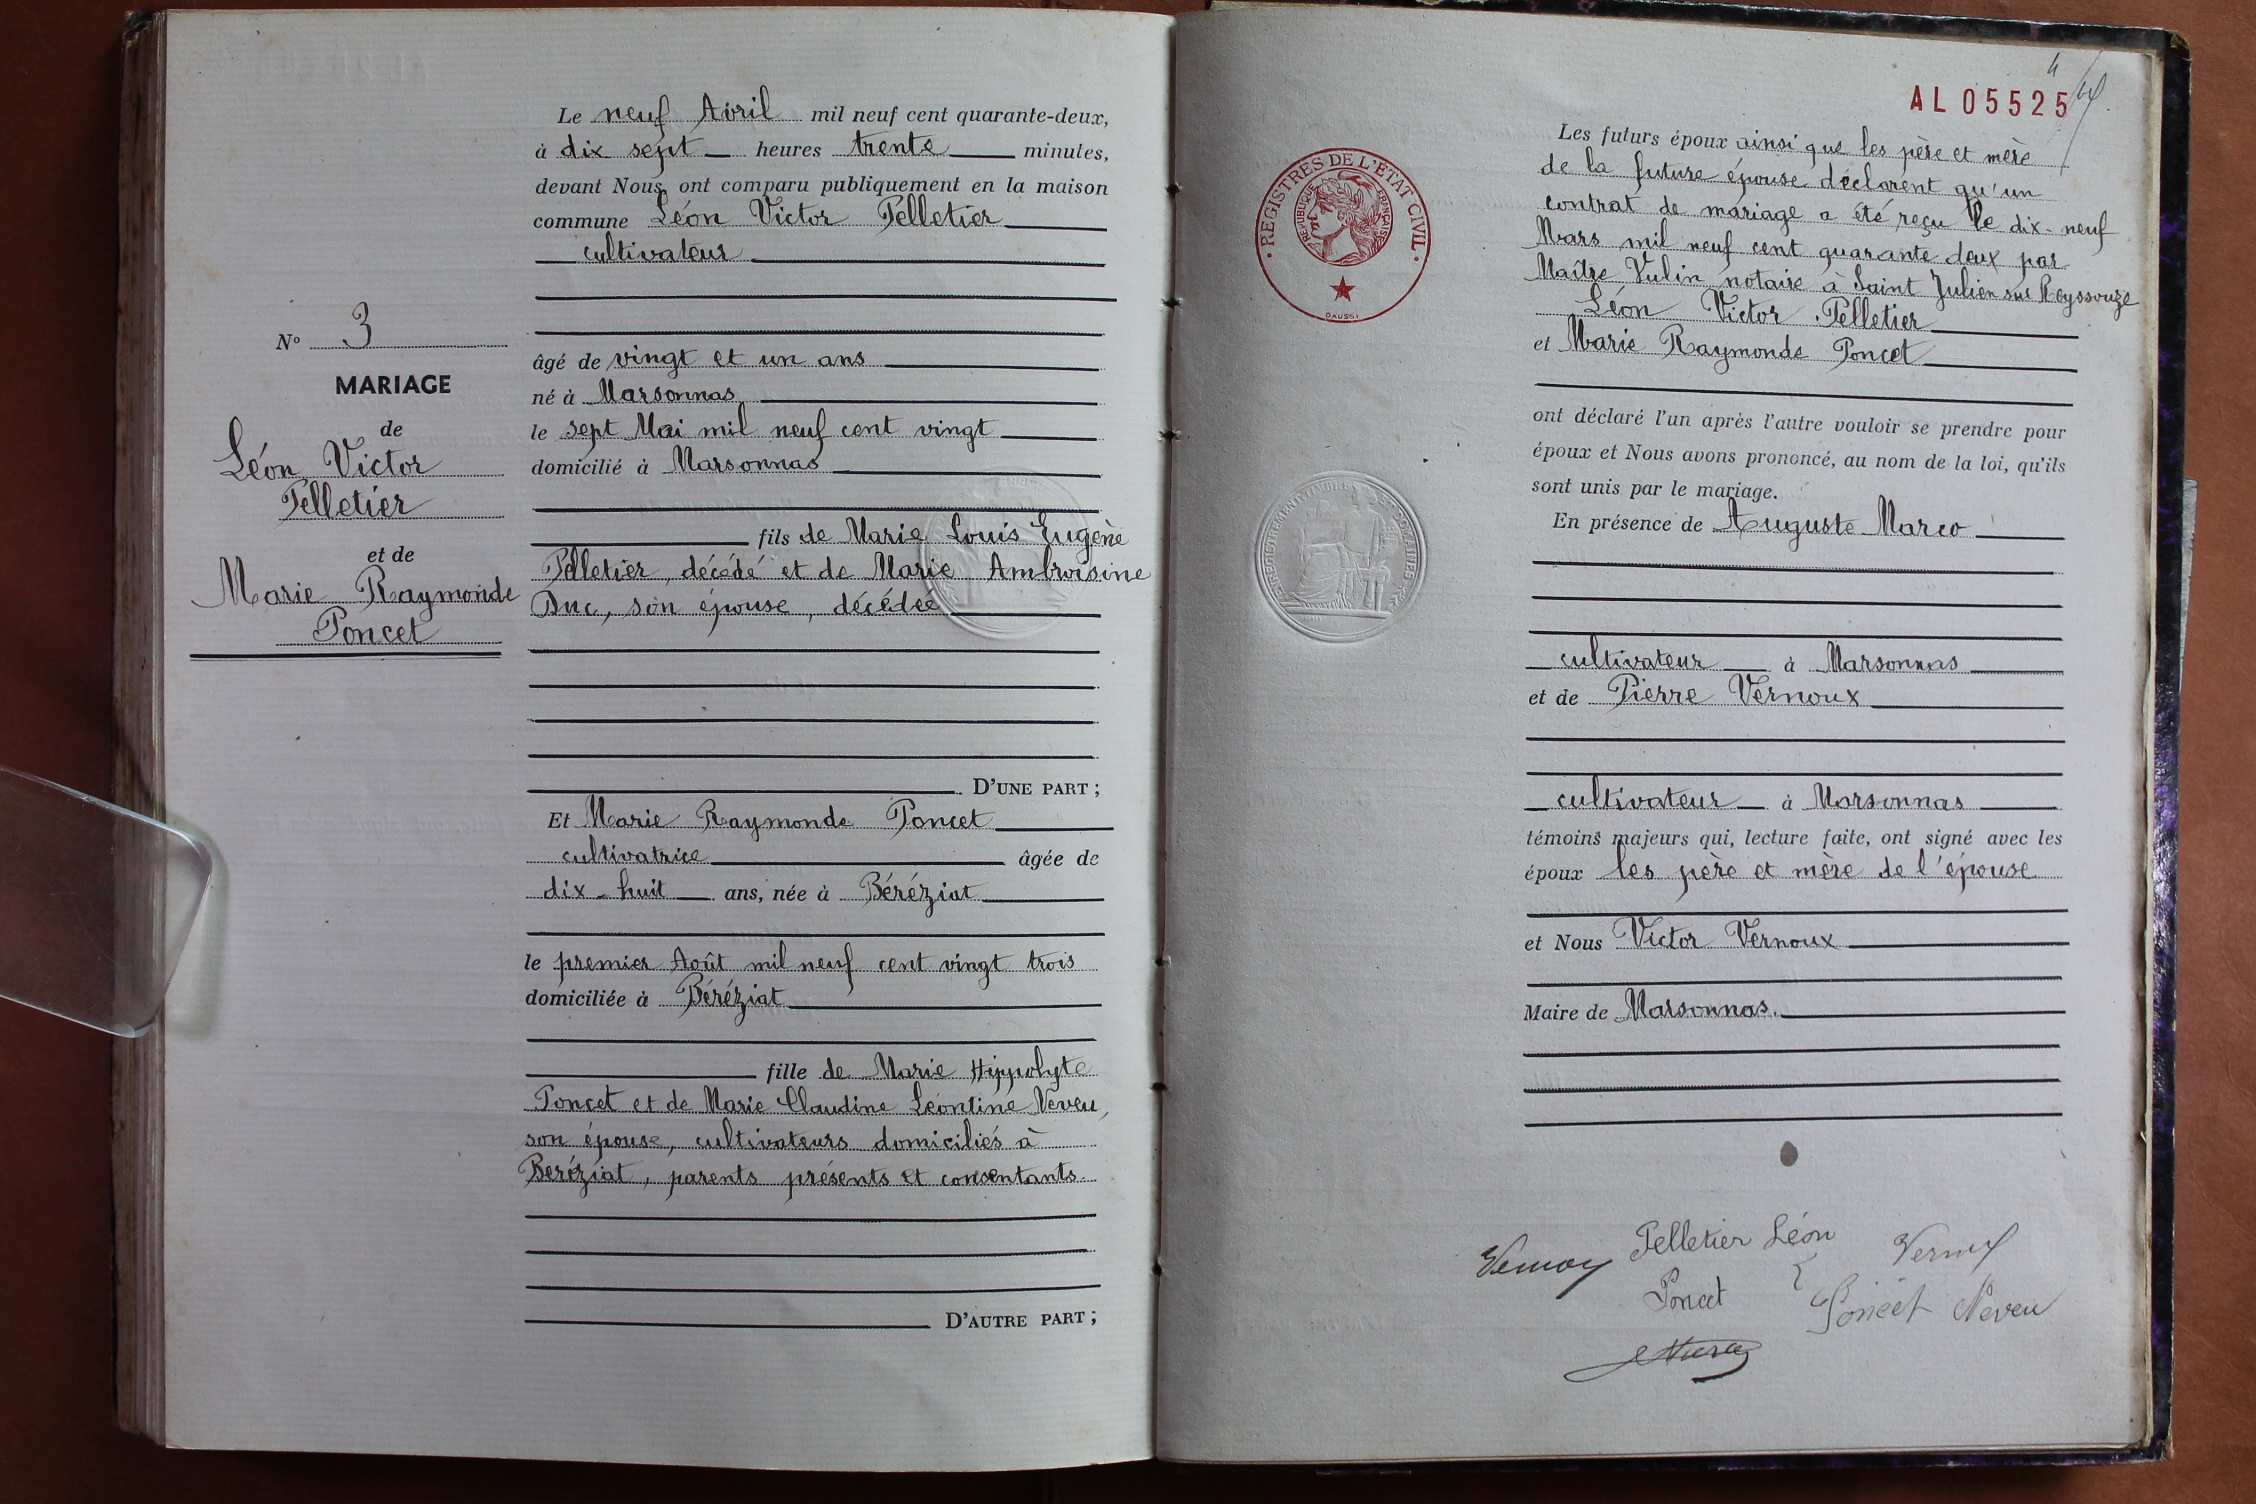 Le neuf Avril mil neuf cent quarante-deux,
à dix sept heures trente minutes,
devant Nous ont comparu publiquement en la maison
commune Léon Victor Pelletier
cultivateur
âgé de vingt et un ans
né à Marsonnas
le sept Mai mil neuf cent vingt
domicilié à Marsonnas
fils de Marie Louis Eugène
Pelletier, décédé et de Marie Ambroisine
Duc, son épouse, décédée
D'UNE PART ;
Et Marie Raymonde Poncet
cultivatrice âgée de
dix-huit ans, née à Béréziat
le premier Août mil neuf cent vingt trois
domiciliée à Béréziat
fille de Marie Hippolyte
Poncet et de Marie Claudine Léontine Neveu,
son épouse, cultivateurs domiciliés à
Beréziat, parents présents et consentants
D'AUTRE PART ;
N° 3
MARIAGE
de
Léon Victor
Pelletier
et de
Marie Raymonde
Poncet
4
AL 05525
REGISTRES DE L'ÉTAT CIVIL
REPUBLIQUE FRANÇAISE
DAUSSI
Les futurs époux ainsi que les père et mère
de la future épouse déclarent qu'un
contrat de mariage a été reçu le dix-neuf
Mars mil neuf cent quarante deux par
Maître Vulin notaire à Saint Julien sur Reyssouze
Léon Victor Pelletier
et Marie Raymonde Poncet
ont déclaré l'un après l'autre vouloir se prendre pour
époux et Nous avons prononcé, au nom de la loi, qu'ils
sont unis par le mariage.
En présence de Auguste Marco
cultivateur à Marsonnas
et de Pierre Vernoux
cultivateur à Marsonnas
témoins majeurs qui, lecture faite, ont signé avec les
époux les père et mère de l'épouse
et Nous Victor Vernoux
Maire de Marsonnas.
Pelletier Léon
Poncet
Poncet Neveu